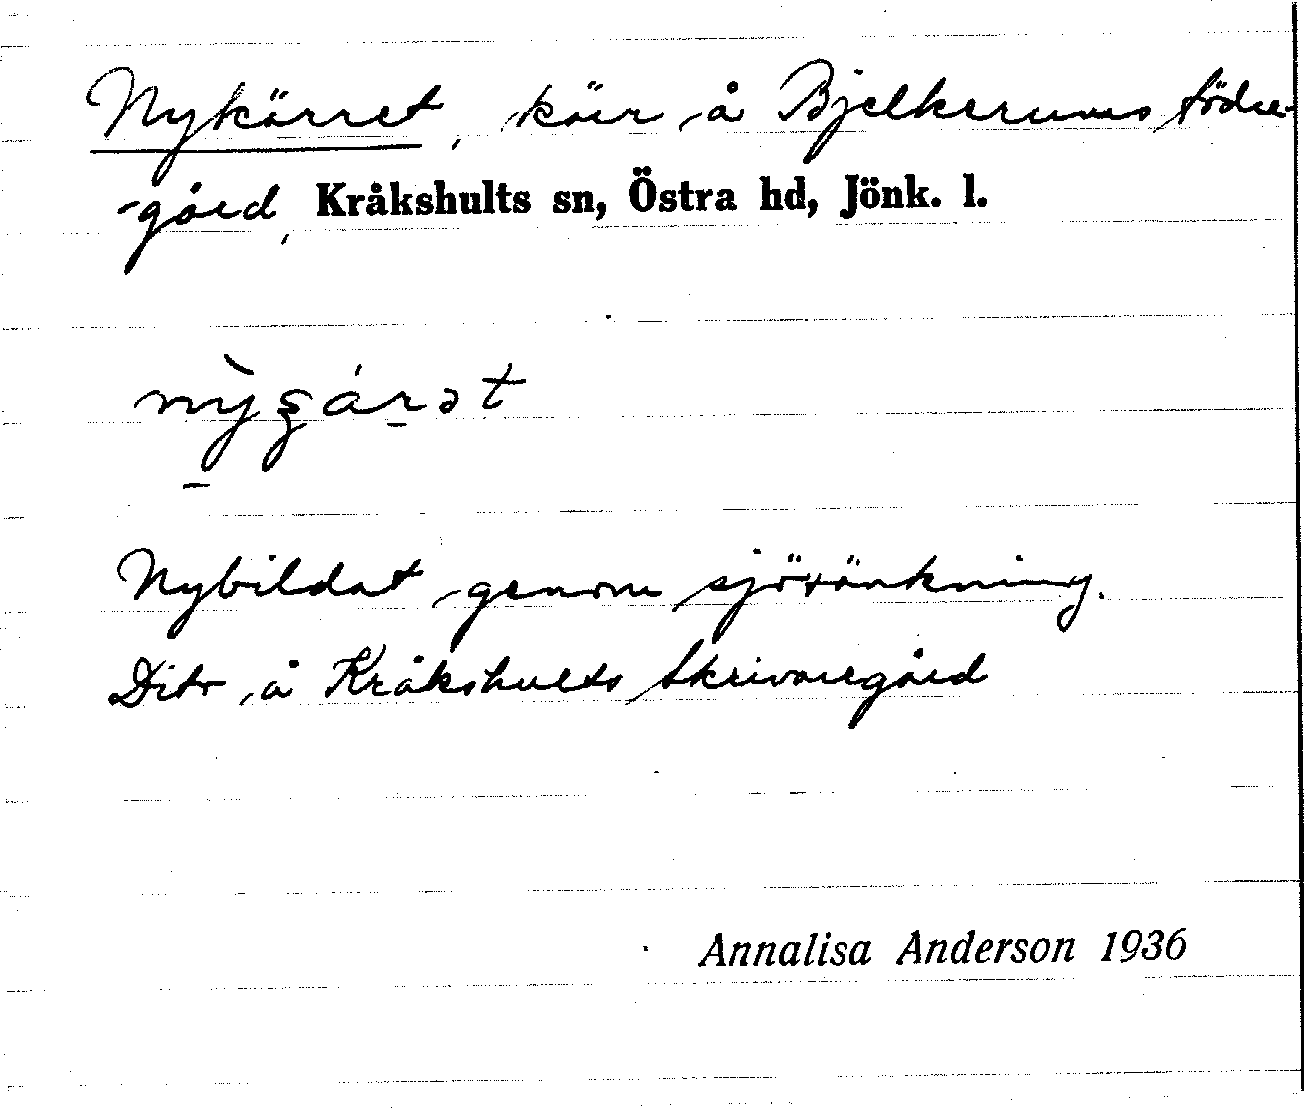 Nykärret, kärr å Bjelkerums södre-
-gård, Kråkshults sn, Östra hd, Jönk. l.
Nybildat genom sjösänkning.
Dito å Kråkshults Skrivaregård
Annalisa Anderson 1936